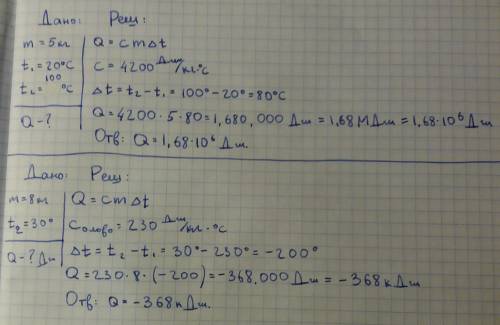 Дано: Реш:
m = 5кг Q = c m Δt
t₁ = 20°C c = 4200 Дж/кг·°C
t₂ = 100 °C Δt = t₂ - t₁ = 100° - 20° = 80°C
Q - ? Q = 4200 · 5 · 80 = 1,680,000 Дж = 1,68 МДж = 1,68·10⁶ Дж
Отв: Q = 1,68·10⁶ Дж.
Дано: Реш:
m = 8кг Q = c m Δt
t₂ = 30° c олово = 230 Дж/кг·°C
Q - ? Дж Δt = t₂ - t₁ = 30° - 230° = -200°
Q = 230 · 8 · (-200) = -368,000 Дж = -368 кДж
Отв: Q = -368 кДж.